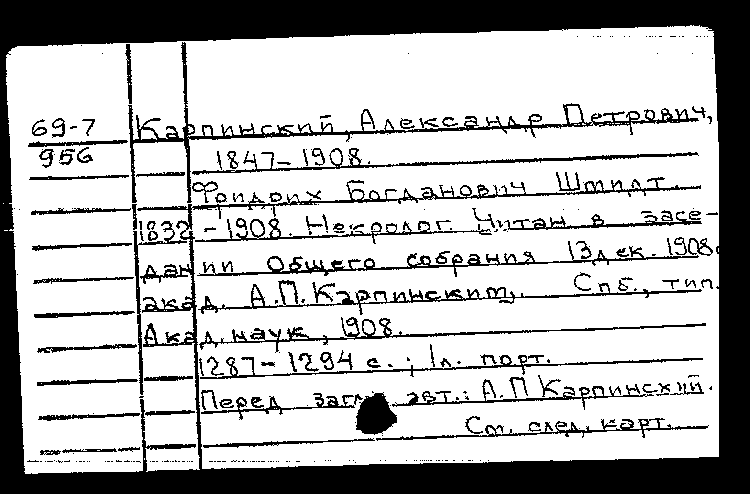 69-7 Карпинский, Александр Петрович,
956 1847-1908.
Фридрих Богданович Шмидт
1832-1908. Некролог. Читан в засе-
дании Общего собрания 13 дек. 1908
акад. А.П. Карпинским. Спб., тип.
Акад. наук, 1908.
1287-1294 с.; 1 л. порт.
Перед загл. авт.: А.П Карпинский.
См. след. карт.